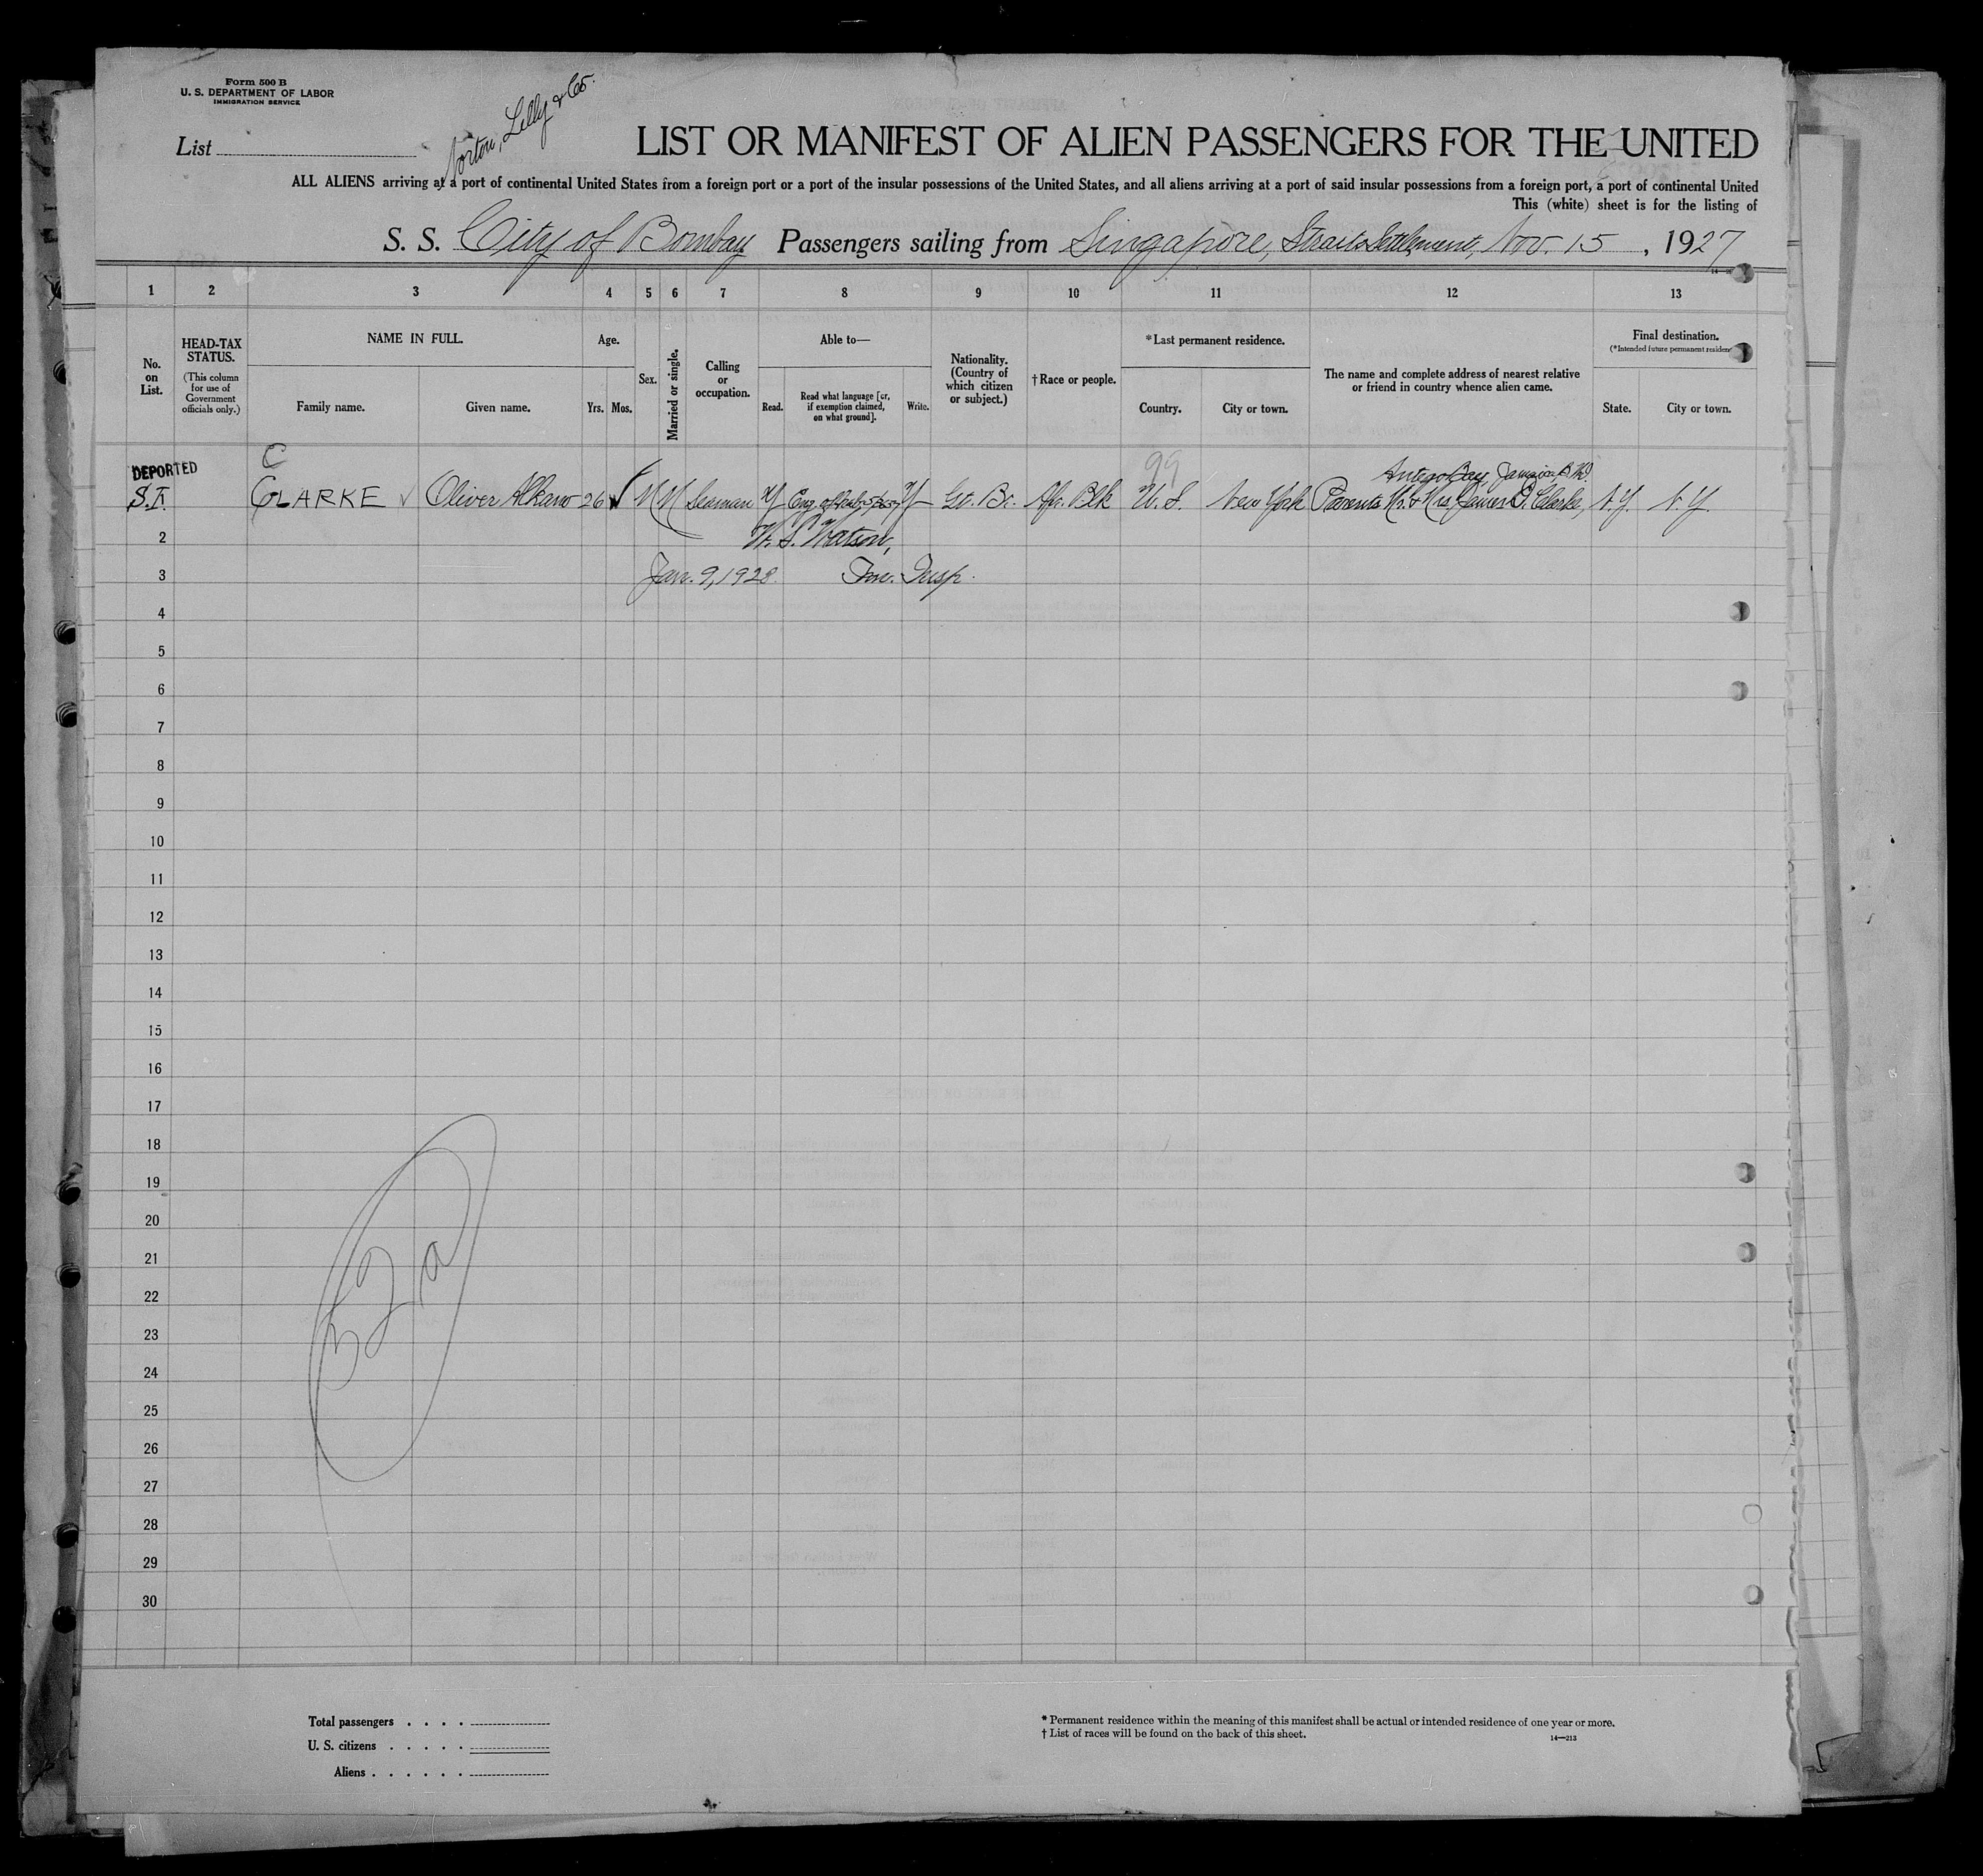 Form 500 B
U. S. DEPARTMENT OF LABOR
IMMIGRATION SERVICE
List
Norton, Lilly & Co.
LIST OR MANIFEST OF ALIEN PASSENGERS FOR THE UNITED
ALL ALIENS arriving at a port of continental United States from a foreign port or a port of the insular possessions of the United States, and all aliens arriving at a port of said insular possessions from a foreign port, a port of continental United
This (white) sheet is for the listing of
S. S. City of Bombay Passengers sailing from Singapore, Straits Settlement, Nov. 15, 1927
1 2 3 4 5 6 7 8 9 10 11 12 13
No. on List.
HEAD-TAX STATUS.
(This column for use of Government officials only.)
NAME IN FULL.
Family name. Given name.
Age.
Yrs. Mos.
Sex.
Married or single.
Calling or occupation.
Able to—
Read. Read what language [or, if exemption claimed, on what ground]. Write.
Nationality. (Country of which citizen or subject.)
† Race or people.
* Last permanent residence.
Country. City or town.
The name and complete address of nearest relative or friend in country whence alien came.
Final destination.
(* Intended future permanent residence)
State. City or town.
C
99
DEPORTED
Bay, Jamaica, B.W.I.
S.I. CLARKE Oliver 26 M M Seaman Y Eng. Y Gt. Br. Afr. Blk U. S. New York Parents Mr. & Mrs. James Clarke, N.Y. N.Y.
2 W. S. Watson,
3 Jan. 9, 1928. Imm. Insp.
4
5
6
7
8
9
10
11
12
13
14
15
16
17
18
19
20
21
22
23
24
25
26
27
28
29
30
Total passengers . . . .
U. S. citizens . . . . .
Aliens . . . . . .
* Permanent residence within the meaning of this manifest shall be actual or intended residence of one year or more.
† List of races will be found on the back of this sheet.
14—213